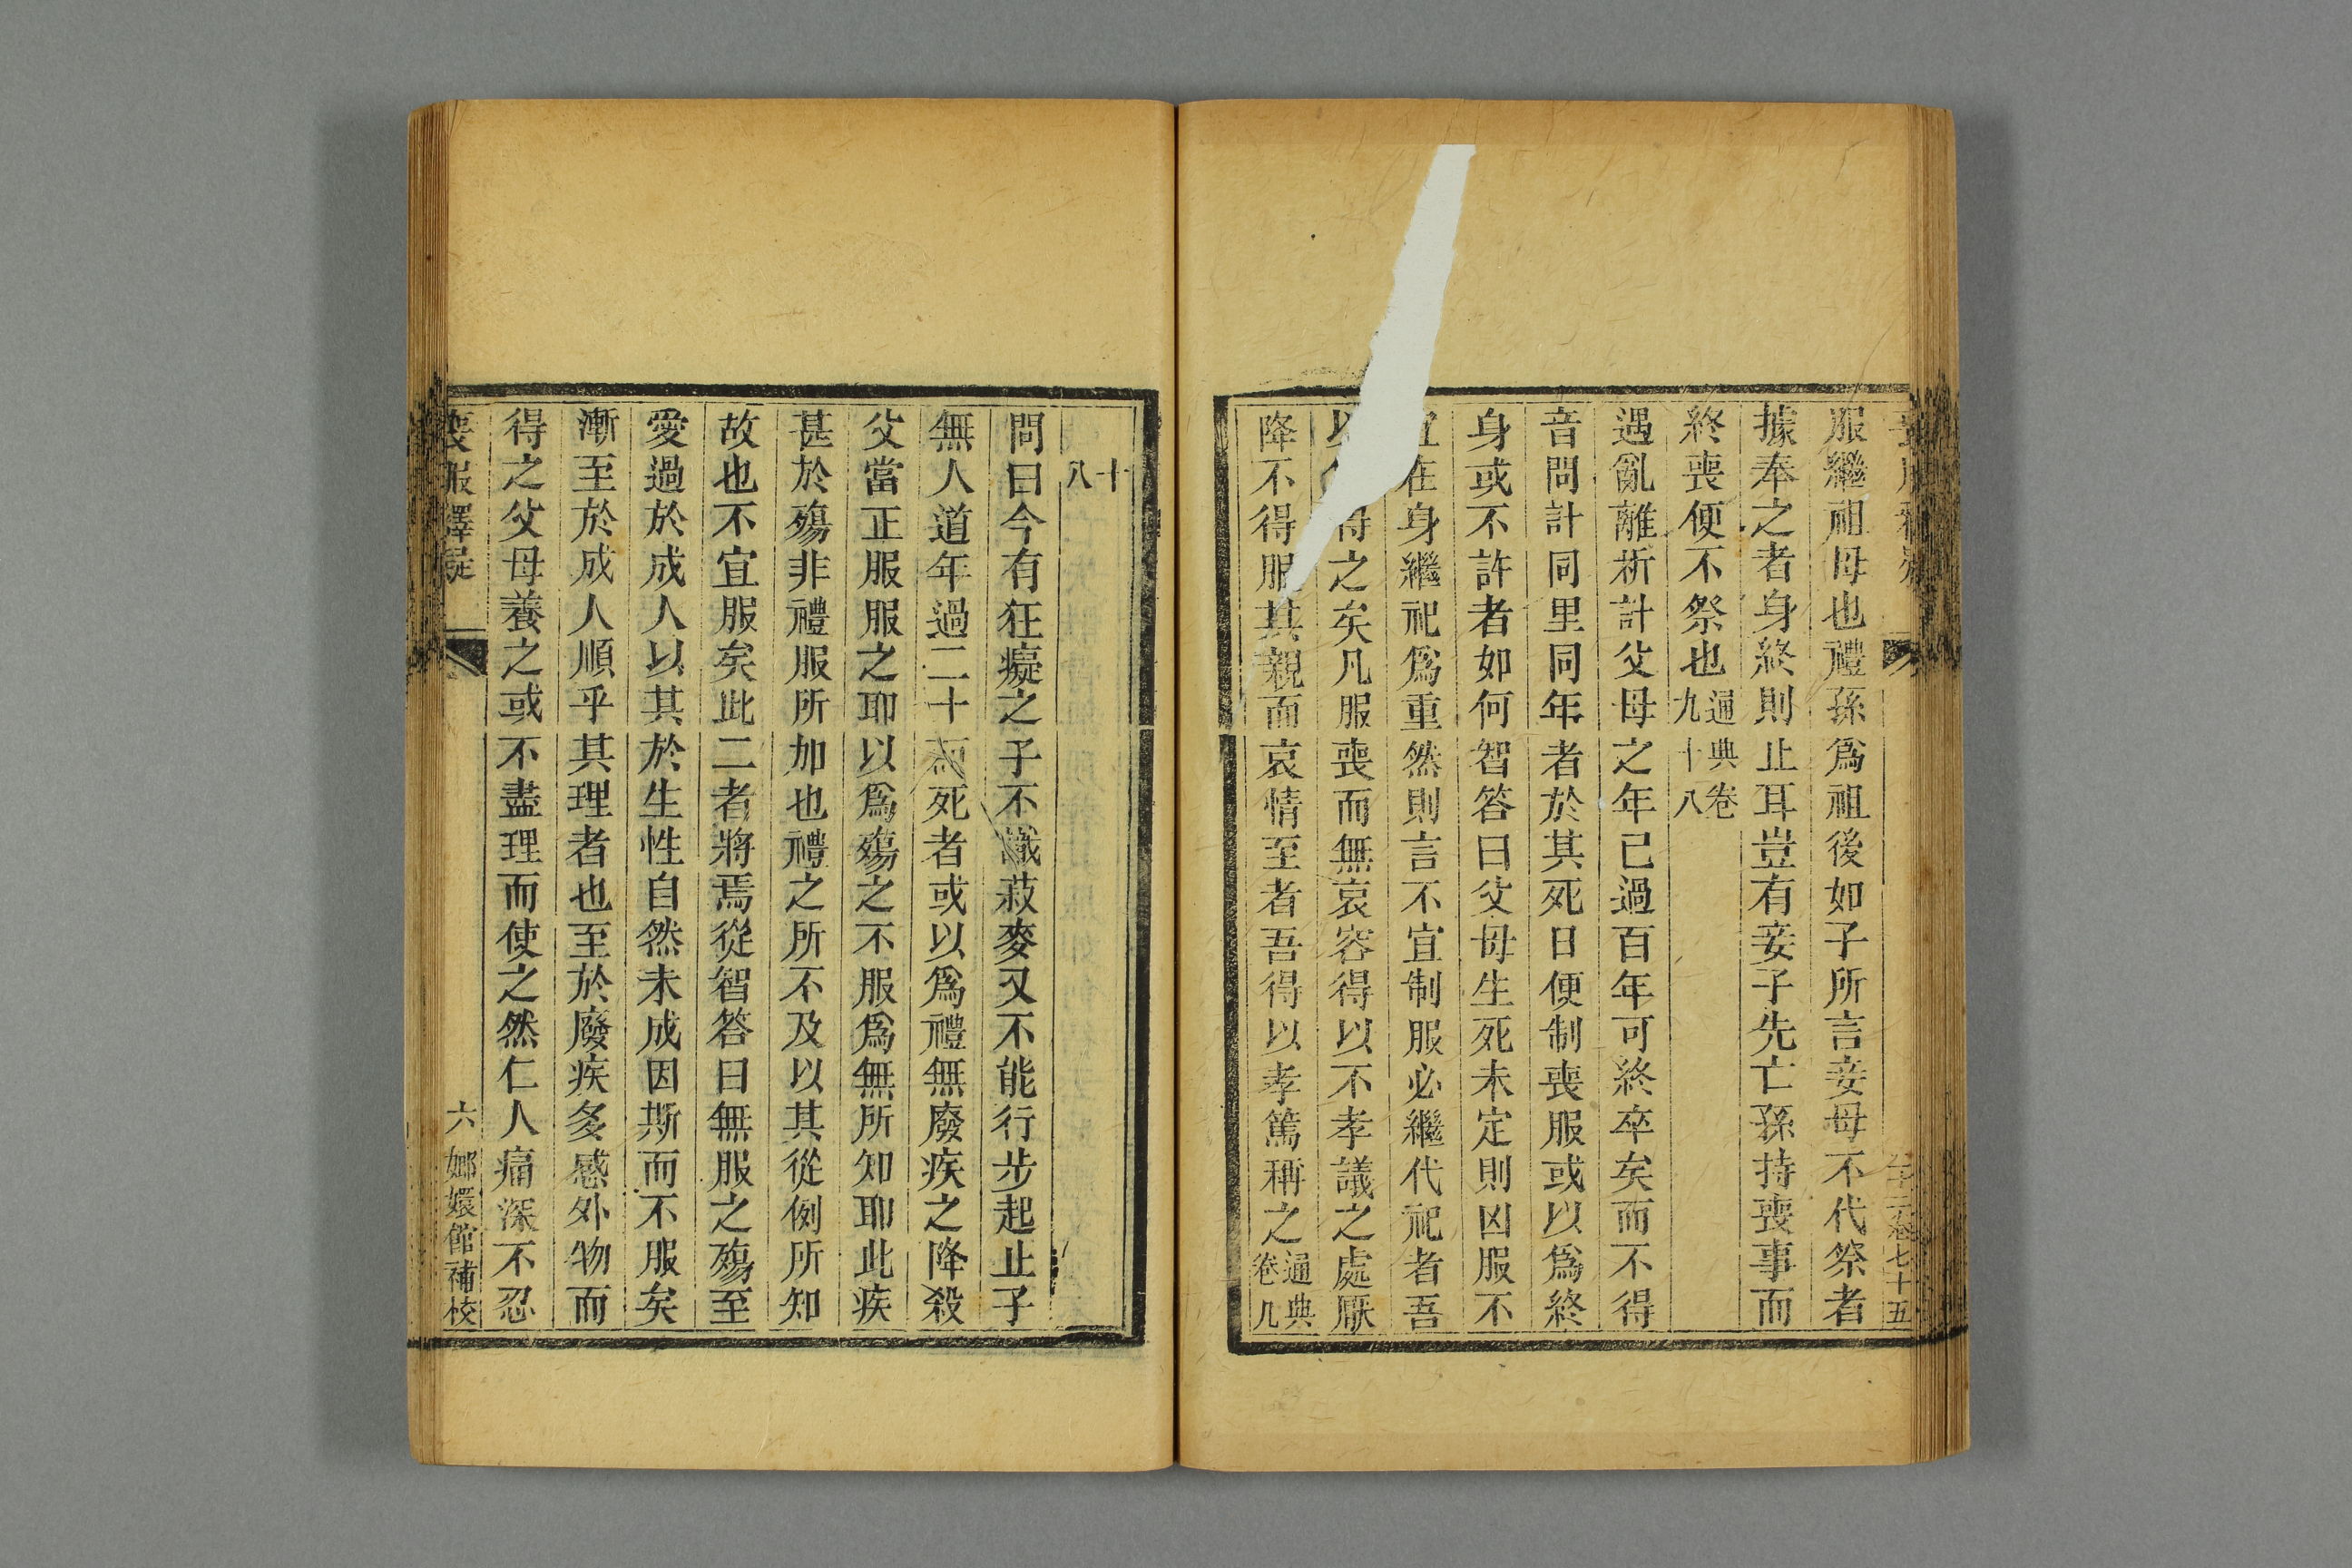 服繼祖母也禮孫爲祖後如子所言妾母不代祭者
據奉之者身終則止耳豈有妾子先亡孫持喪事而
終喪便不祭也通典卷九十八
遇亂離析計父母之年已過百年可終卒矣而不得
音問計同里同年者於其死日便制喪服或以爲終
身或不許者如何智答曰父母生死未定則凶服不
宜在身繼祀爲重然則言不宜制服必繼代祀者吾
以得之矣凡服喪而無哀容得以不孝議之處厭
降不得服其親而哀情至者吾得以孝篤稱之通典卷九
十八
問曰今有狂癡之子不識菽麥又不能行步起止子
無人道年過二十而死者或以爲禮無廢疾之降殺
父當正服服之耶以爲殤之不服爲無所知耶此疾
甚於殤非禮服所加也禮之所不及以其從例所知
故也不宜服矣此二者將焉從智答曰無服之殤至
愛過於成人以其於生性自然未成因斯而不服矣
漸至於成人順乎其理者也至於廢疾多感外物而
得之父母養之或不盡理而使之然仁人痛深不忍
喪服釋疑
六
嫏嬛館補校